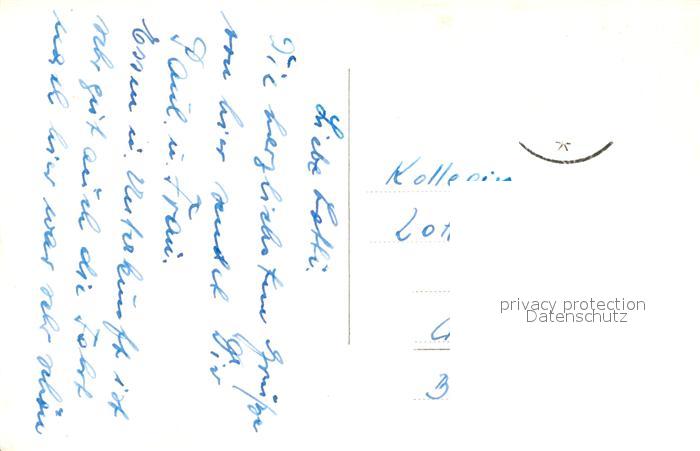 Liebe Lotti.
Die herzlichsten Grüße
von hier sendet Dir
Paul u. Frau.
Essen u. Unterkunft ist
sehr gut auch die Fahrt
nach hier war sehr schön
Kollegin
Lott
B
privacy protection
Datenschutz